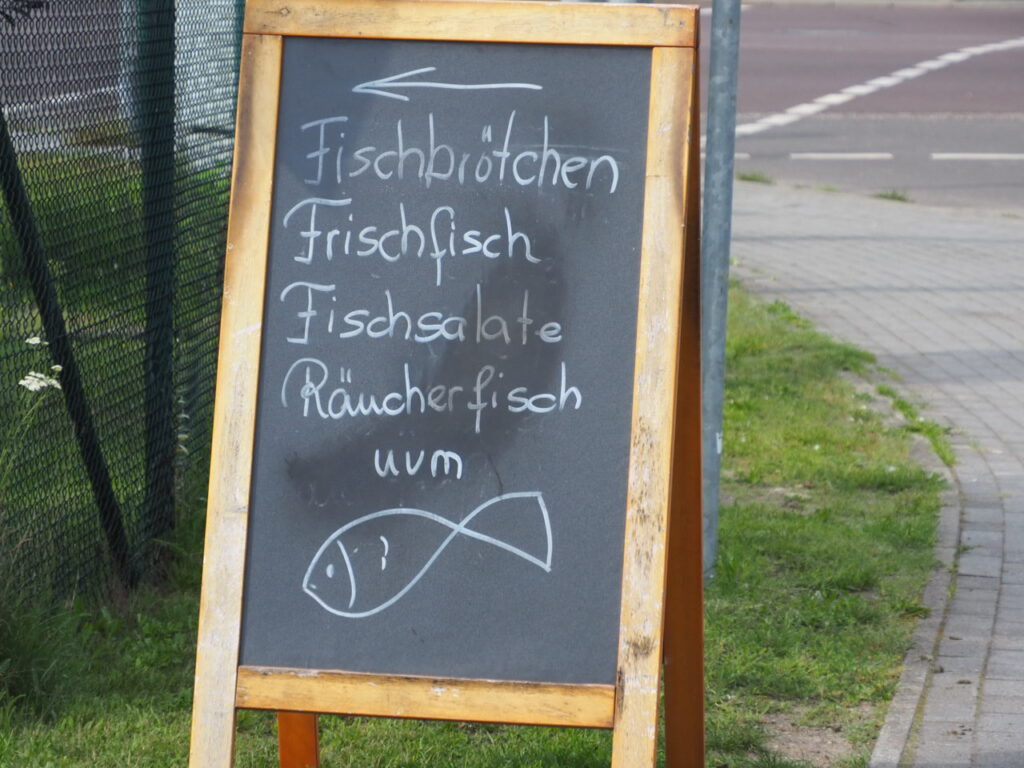 Fischbrötchen
Frischfisch
Fischsalate
Räucherfisch
uvm